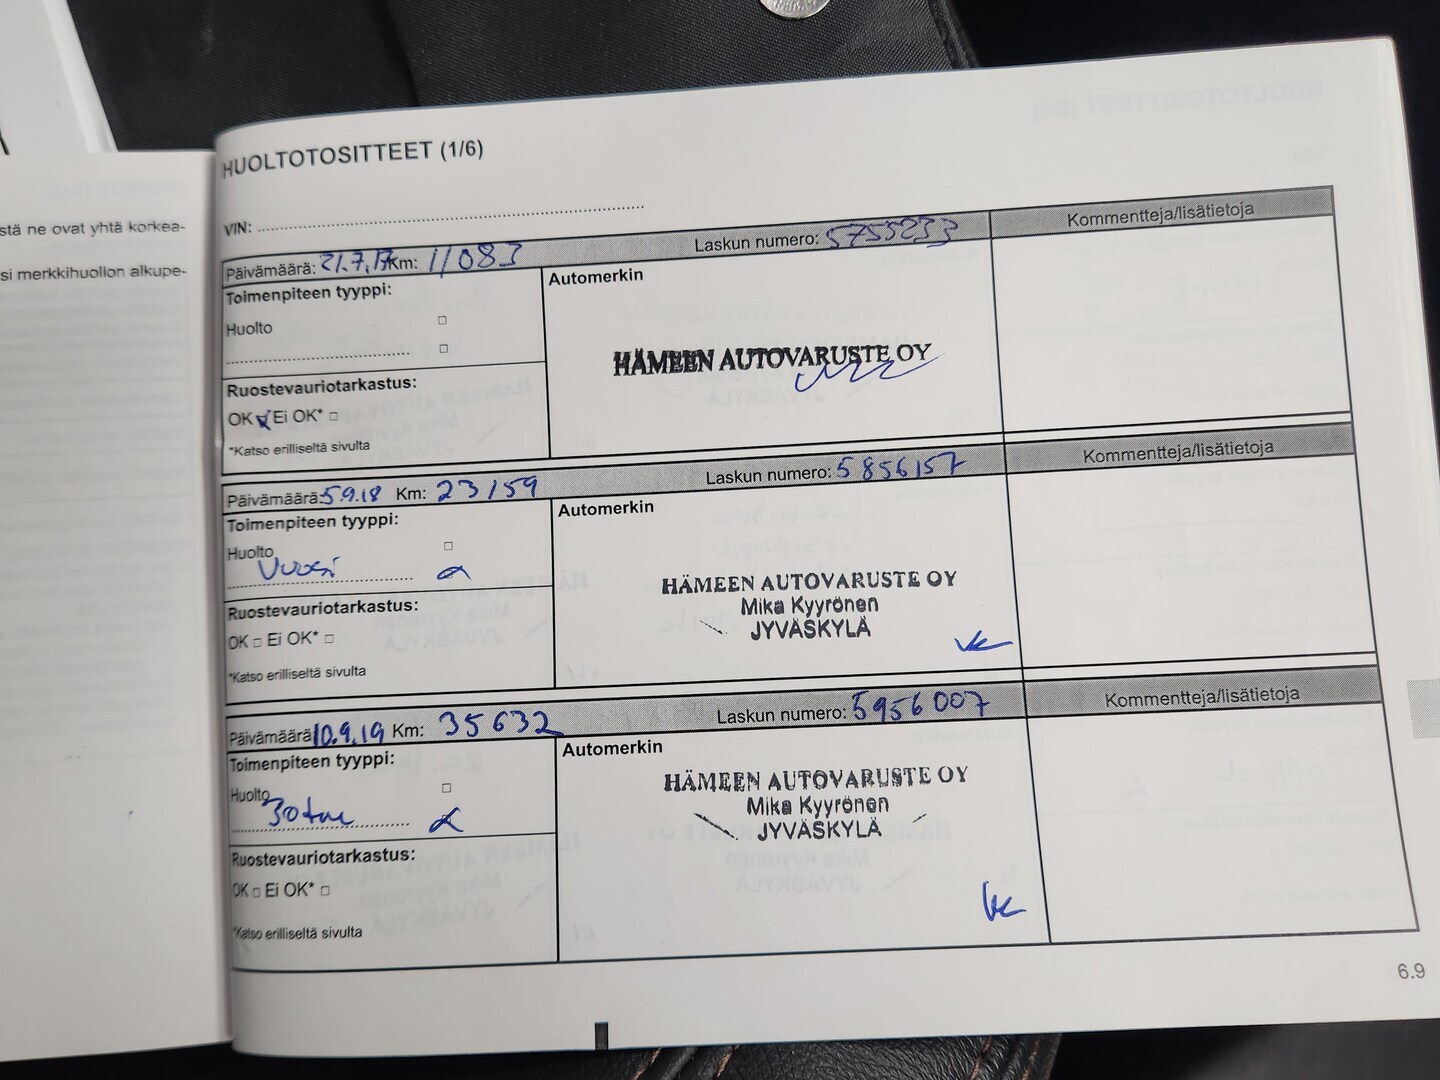 stä ne ovat yhtä korkea-
si merkkihuollon alkupe-
HUOLTOTOSITTEET (1/6)
VIN:
Päivämäärä: 21.7.17 Km: 11083 Laskun numero: 5755233 Kommentteja/lisätietoja
Toimenpiteen tyyppi:
Huolto
Ruostevauriotarkastus:
OK Ei OK*
*Katso erilliseltä sivulta
Automerkin
HÄMEEN AUTOVARUSTE OY
Päivämäärä: 5.9.18 Km: 23159 Laskun numero: 5856157 Kommentteja/lisätietoja
Toimenpiteen tyyppi:
Huolto
Vuosi
Ruostevauriotarkastus:
OK Ei OK*
*Katso erilliseltä sivulta
Automerkin
HÄMEEN AUTOVARUSTE OY
Mika Kyyrönen
JYVÄSKYLÄ
Päivämäärä 10.9.19 Km: 35632 Laskun numero: 5956007 Kommentteja/lisätietoja
Toimenpiteen tyyppi:
Huolto
30 tkm
Ruostevauriotarkastus:
OK Ei OK*
*Katso erilliseltä sivulta
Automerkin
HÄMEEN AUTOVARUSTE OY
Mika Kyyrönen
JYVÄSKYLÄ
6.9